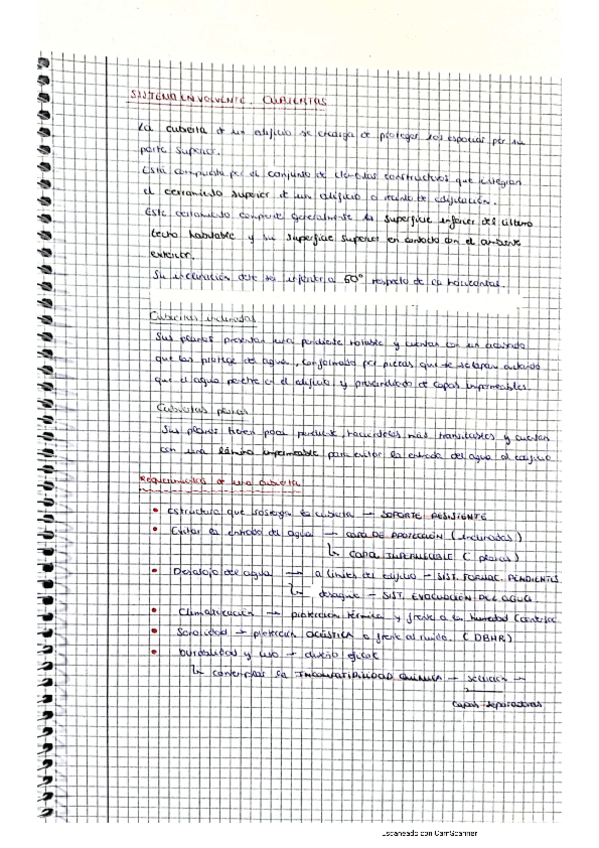 SISTEMA ENVOLVENTE. CUBIERTAS
La cubierta de un edificio se encarga de proteger los espacios por su
parte superior.
Está compuesta por el conjunto de elementos constructivos que integran
el cerramiento superior de un edificio o recinto de edificación.
Este cerramiento comparte generalmente la superficie inferior del último
techo habitable y su superficie superior en contacto con el ambiente
exterior.
Su inclinación debe ser inferior a 60° respecto de la horizontal.
Cubiertas inclinadas
Sus planos presentan una pendiente notable y cuentan con un acabado
que las protege del agua, conformado por piezas que se solapan evitando
que el agua penetre en el edificio y prescindiendo de capas impermeables.
Cubiertas planas
Sus planos tienen poca pendiente, haciéndolas más transitables y cuentan
con una lámina impermeable para evitar la entrada del agua al edificio
Requerimientos de una cubierta
• Estructura que sostenga la cubierta → SOPORTE RESISTENTE
• Evitar la entrada del agua → CAPA DE PROTECCIÓN (inclinadas)
↳ CAPA IMPERMEABLE (planas)
• Desalojo del agua → a límites del edificio - SIST. FORMAC. PENDIENTES
↳ desagüe - SIST. EVACUACIÓN DEL AGUA.
• Climatización → protección térmica y frente a la humedad
• Sonoridad → protección ACÚSTICA o frente al ruido. (DBHR)
• Durabilidad y uso → diseño eficaz
↳ contemplar la INCOMPATIBILIDAD QUÍMICA → solución →
capas separadoras
Escaneado con CamScanner